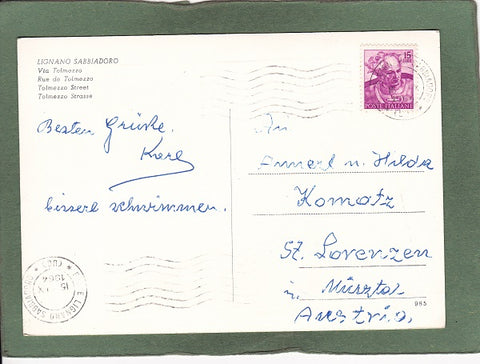 LIGNANO SABBIADORO
Via Tolmezzo
Rue de Tolmezzo
Tolmezzo Street
Tolmezzo Strasse
Besten Grüße.
Karl
bisserl schwimmen.
15
POSTE ITALIANE
An
Annerl u. Hilda
Komatz
St. Lorenzen
in Mürztal
Austria.
985
LIGNANO SABBIADORO
15
1964